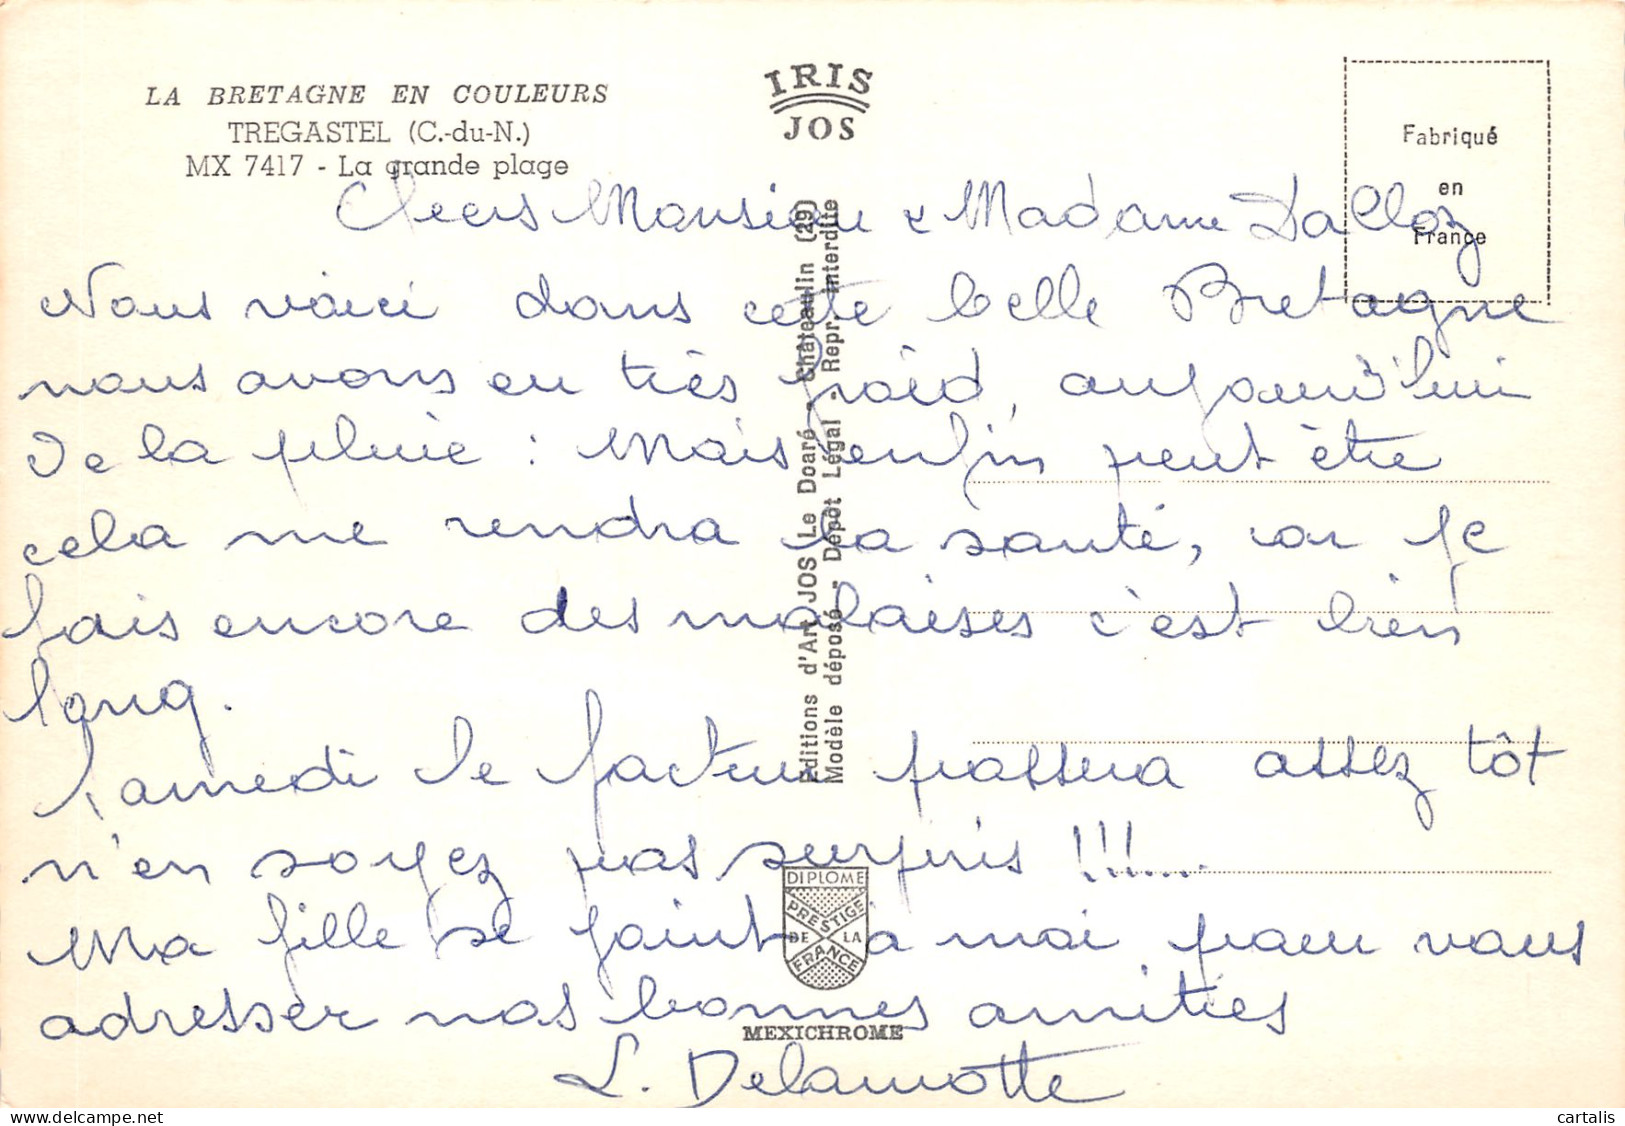 LA BRETAGNE EN COULEURS
TREGASTEL (C.-du-N.)
MX 7417 - La grande plage
IRIS
JOS
Fabriqué
en
France
Editions d'Art JOS Le Doaré - Châteaulin (29)
Modèle déposé - Dépôt Légal - Repr. interdite
Chers Monsieur & Madame Dalloz
Nous voici dans cette belle Bretagne
nous avons eu très froid, aujourd'hui
de la pluie : Mais enfin peut être
cela me rendra la santé, car je
fais encore des malaises c'est bien
long.
Samedi le facteur passera assez tôt
n'en soyez pas surpris !!!....
Ma fille se joint à moi pour vous
adresser nos bonnes amitiés
L. Delamotte
DIPLOME
PRESTIGE
DE LA
FRANCE
MEXICHROME
cartalis